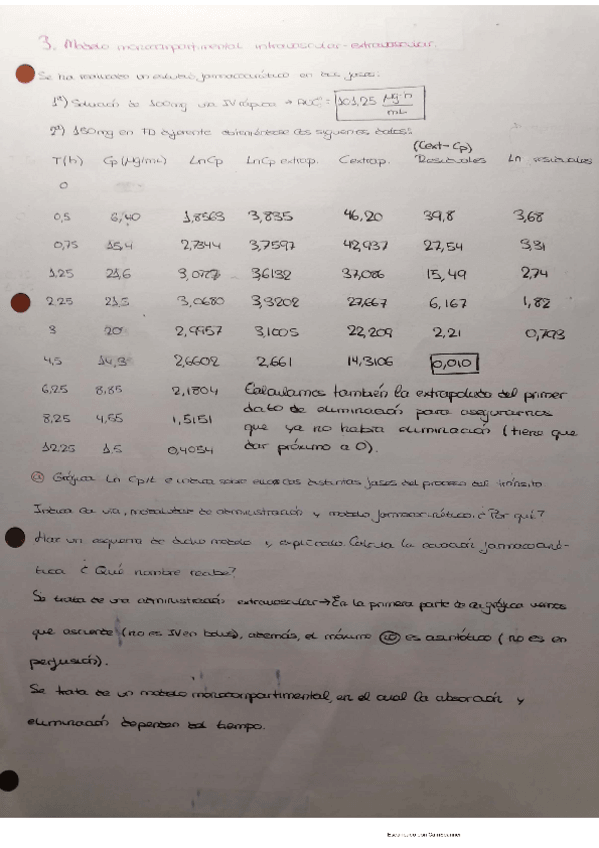 3. Modelo monocompartimental intravascular-extravascular.
Se ha realizado un estudio farmacocinético en dos fases:
1ª) Solución de 100mg vía IV rápida → AUC = 101,25 μg·h/mL
2ª) 150mg en FD diferente obteniéndose los siguientes datos:
(Cext - Cp)
T(h) Cp(μg/mL) LnCp LnCp extrap. Cextrap. Residuales Ln residuales
0
0,5 6,40 1,8563 3,835 46,20 39,8 3,68
0,75 15,4 2,7344 3,7597 42,937 27,54 3,31
1,25 21,6 3,0727 3,6132 37,086 15,49 2,74
2,25 21,5 3,0680 3,3202 27,667 6,167 1,82
3 20 2,9957 3,1005 22,209 2,21 0,793
4,5 14,3 2,6602 2,661 14,3106 0,010
6,25 8,85 2,1804 Calculamos también la extrapolada del primer
dato de eliminación para asegurarnos
8,25 4,55 1,5151 que ya no había eliminación (tiene que
12,25 1,5 0,4054 dar próximo a 0).
a) Gráfica Ln Cp/t e indica sobre ellas las distintas fases del proceso del tránsito
Indica la vía, modalidad de administración y modelo farmacocinético. ¿Por qué?
Haz un esquema de dicho modelo y explícalo. Calcula la ecuación farmacociné-
tica ¿Qué nombre recibe?
Se trata de una administración extravascular → En la primera parte de la gráfica vemos
que asciende (no es IV en bolus), además, el máximo no es asintótico (no es en
perfusión).
Se trata de un modelo monocompartimental, en el cual la absorción y
eliminación dependen del tiempo.
Escaneado con CamScanner